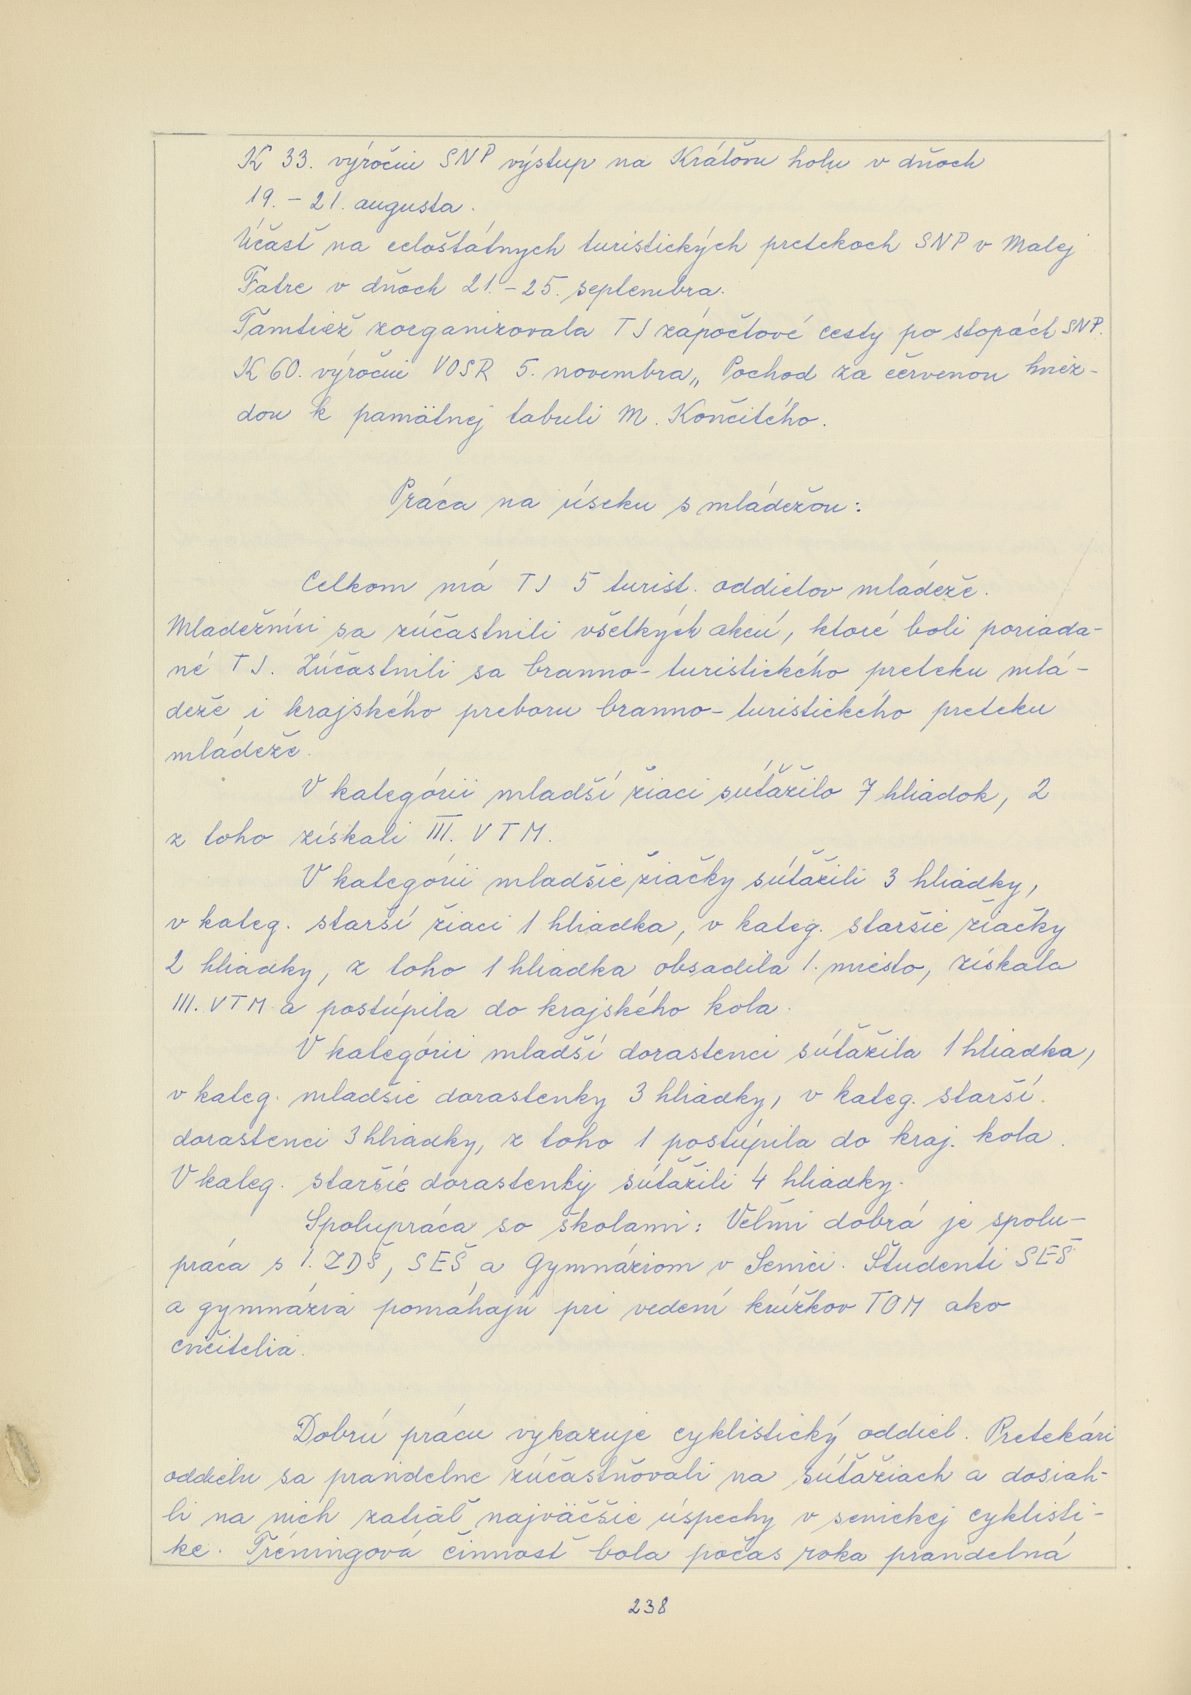 K 33. výročiu SNP výstup na Kráľovu hoľu v dňoch
19. – 21. augusta.
Účasť na celoštátnych turistických pretekoch SNP v Malej
Fatre v dňoch 21. – 25. septembra.
Tamtiež zorganizovala TJ zápočtové cesty po stopách SNP.
K 60. výročiu VOSR 5. novembra „ Pochod za červenou hviez-
dou k pamätnej tabuli M. Končitého.
Práca na úseku s mládežou:
Celkom má TJ 5 turist. oddielov mládeže.
Mladežníci sa zúčastnili všetkých akcií, ktoré boli poriada-
né TJ. Zúčastnili sa branno-turistického preteku mlá-
deže i krajského preboru branno-turistického preteku
mládeže.
V kategórii mladší žiaci súťažilo 7 hliadok, 2
z toho získali III. VTM.
V kategórii mladšie žiačky súťažili 3 hliadky,
v kateg. starší žiaci 1 hliadka, v kateg. staršie žiačky
2 hliadky, z toho 1 hliadka obsadila 1. miesto, získala
III. VTM a postúpila do krajského kola.
V kategórii mladší dorastenci súťažila 1 hliadka,
v kateg. mladšie dorastenky 3 hliadky, v kateg. starší
dorastenci 3 hliadky, z toho 1 postúpila do kraj. kola.
V kateg. staršie dorastenky súťažili 4 hliadky.
Spolupráca so školami: Veľmi dobrá je spolu-
práca s I. ZDŠ, SEŠ a Gymnáziom v Senici. Študenti SEŠ
a gymnázia pomáhajú pri vedení krúžkov TOM ako
cvičitelia.
Dobrú prácu vykazuje cyklistický oddiel. Pretekári
oddielu sa pravidelne zúčastňovali na súťažiach a dosiah-
li na nich zatiaľ najväčšie úspechy v senickej cyklisti-
ke. Tréningová činnosť bola počas roka pravidelná
238